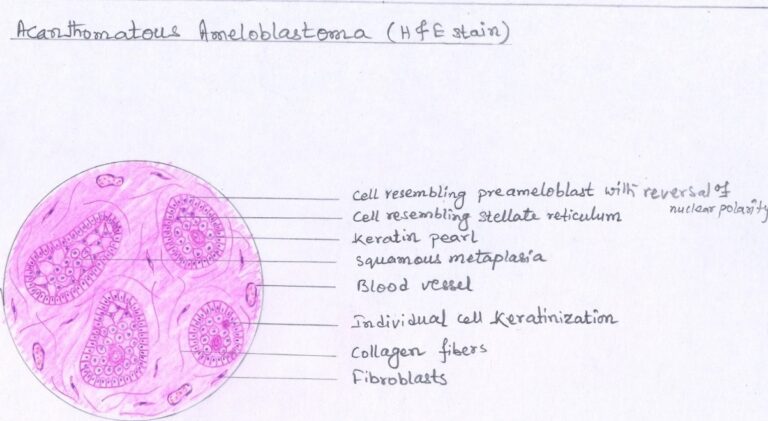 Acanthomatous Ameloblastoma (H&E stain)
Cell resembling preameloblast with reversal of
nuclear polarity
Cell resembling stellate reticulum
Keratin pearl
Squamous metaplasia
Blood vessel
Individual cell Keratinization
Collagen fibers
Fibroblasts